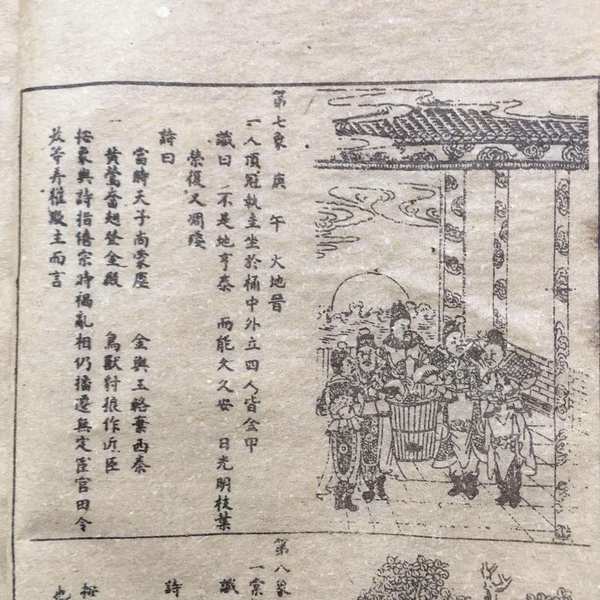 第七象 庚 午 火地晉
一人頂冠執圭坐於桶中外立四人皆金甲
讖曰 不是地亨泰 而能大久安 日光明枝葉
榮復又凋殘
詩曰
當時天子尚蒙塵 金與玉輅棄西秦
黃鶯當翅登金殿 鳥獸豺狼作近臣
按象與詩指僖宗時禍亂相仍播遷無定臣官田令
孜等弄權欺主而言
第八象
一
讖
詩
按
也